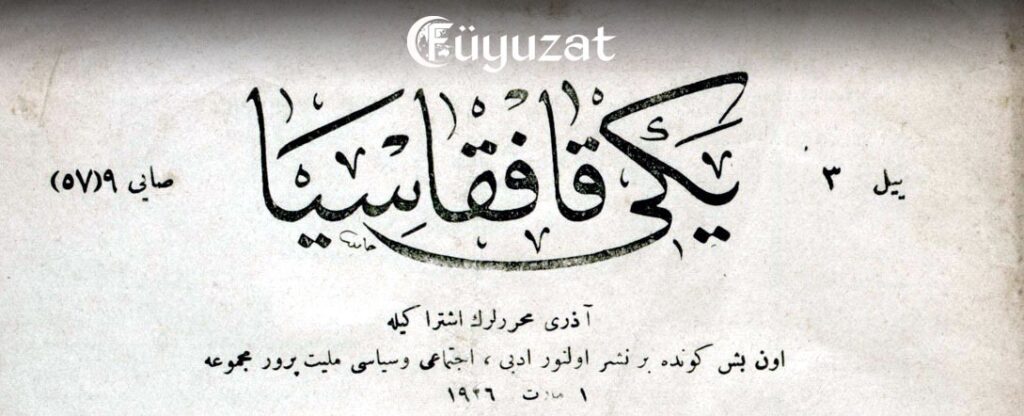 Füyuzat
يڭى قافقاسيا
ييل ٣
صايى ٩(٥٧)
آذرى محررلرك اشتراكيله
اون بش كونده بر نشر اولنور ادبى ، اجتماعى وسياسى مليت پرور مجموعه
١ مارت ١٩٢٦